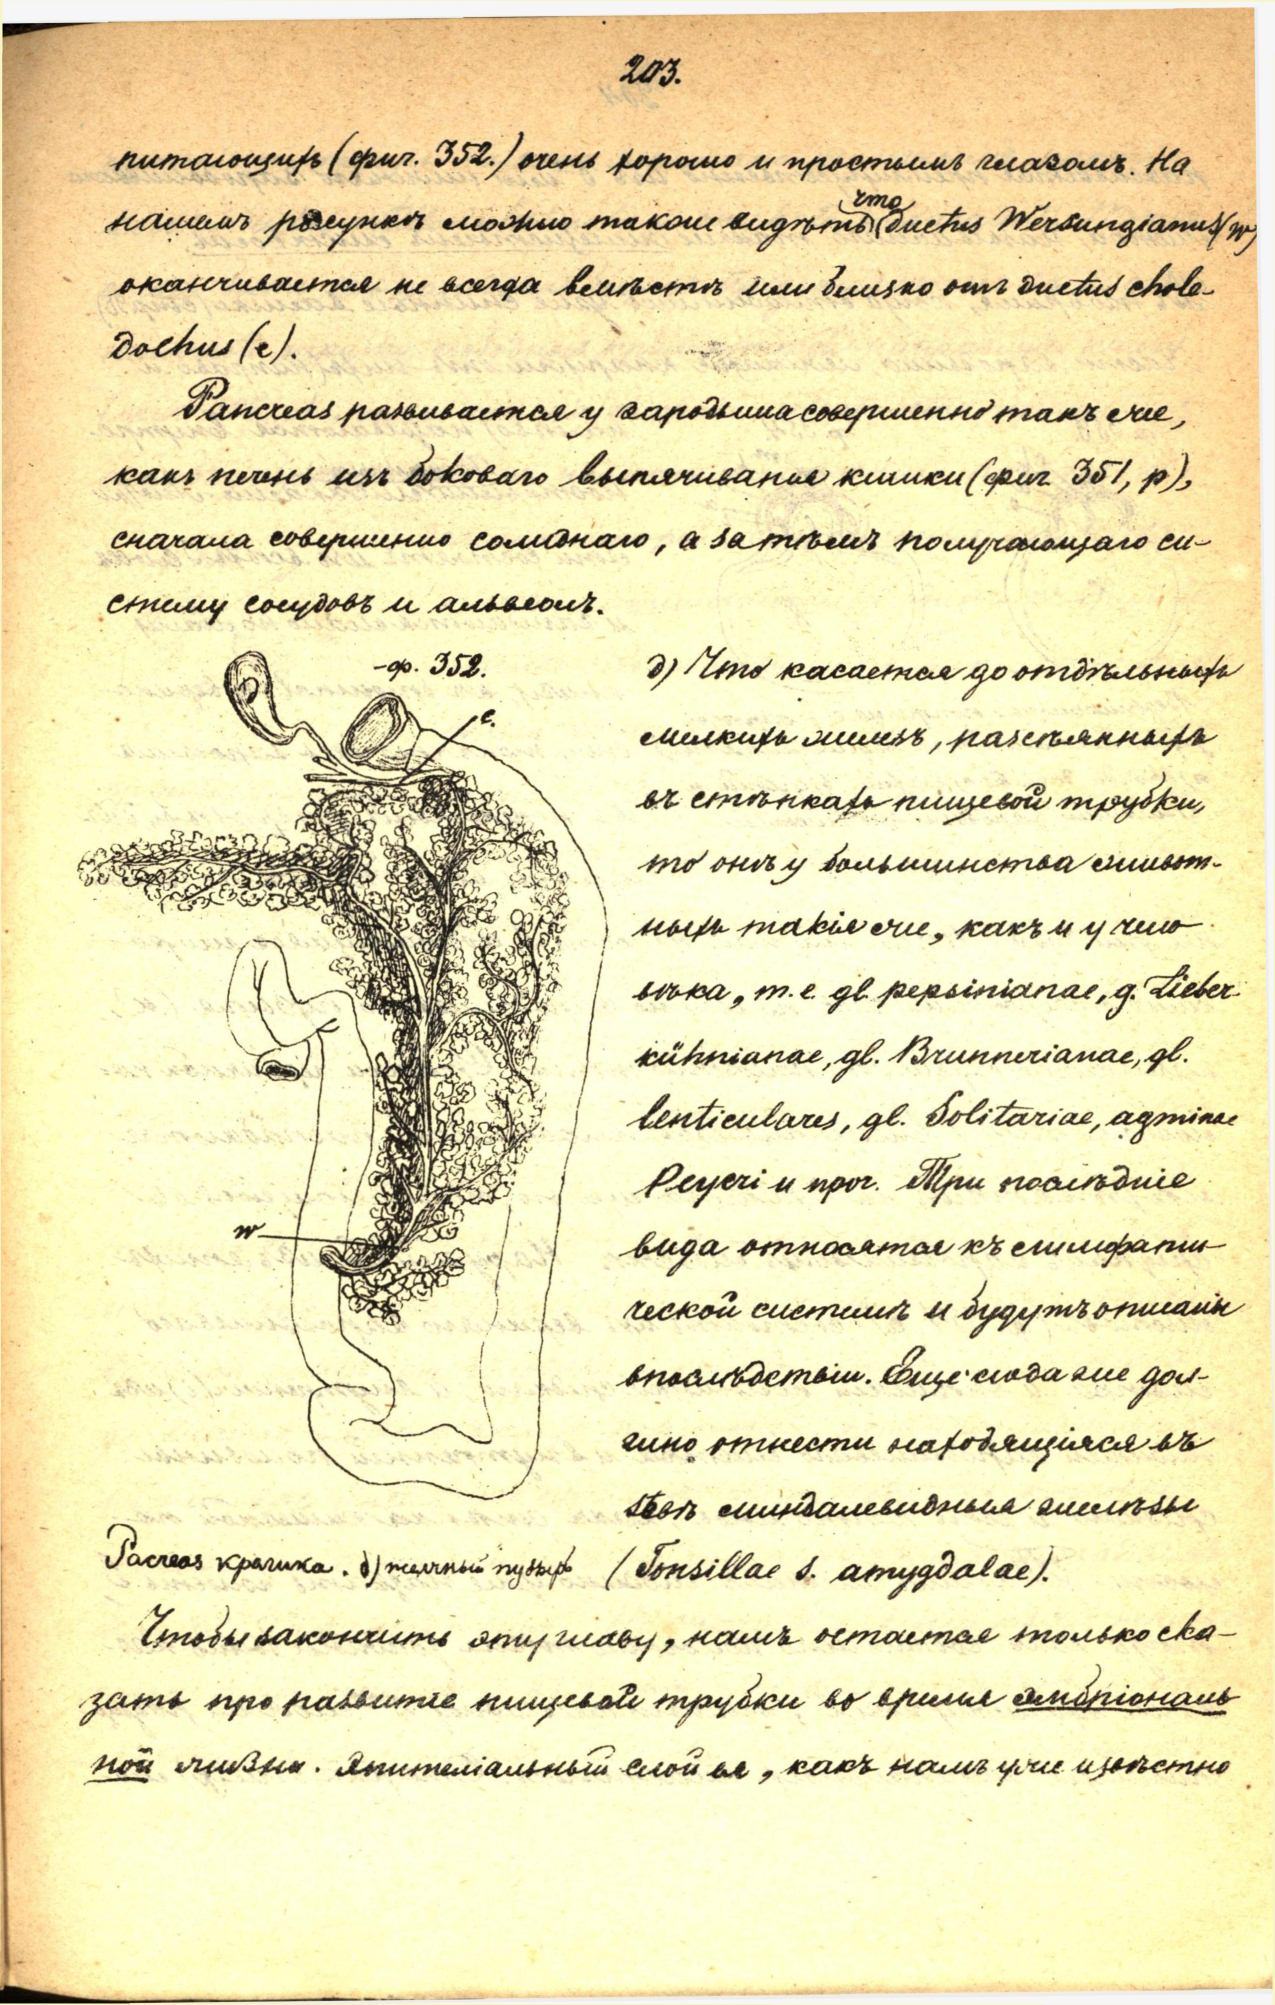 203.
питающихъ (фиг. 352.) очень хорошо и простымъ глазомъ. На
что
нашемъ рисункѣ можно также видѣть (ductus Wersungianus (w)
оканчивается не всегда вмѣстѣ или близко отъ ductus chole-
dochus (c).
Pancreas развивается у зародыша совершенно такъ же,
какъ печень изъ боковаго выпячиванія кишки (фиг 351, p),
сначала совершенно солиднаго, а затѣмъ получающаго си-
стему сосудовъ и альвеолъ.
-ф. 352.
c.
w
д) Что касается до отдѣльныхъ
мелкихъ железъ, разсѣянныхъ
въ стѣнкахъ пищевой трубки,
то онѣ у большинства живот-
ныхъ такія же, какъ и у чело
вѣка, т. е. gl. pepsinianae, g. Lieber
kühnianae, gl. Brunnerianae, gl.
lenticulares, gl. Solitariae, agminae
Peyeri и проч. Три послѣдніе
вида относятся къ лимфати-
ческой системѣ и будутъ описаны
впослѣдствіи. Еще сюда же дол-
жно отнести находящіяся въ
зѣвѣ миндалевидныя желѣзы
(Tonsillae s. amygdalae).
Pacreas кролика. d) желчный пузырь
Чтобы закончить эту главу, намъ остается только ска-
зать про развитіе пищевой трубки во время эмбріональ
ной жизни. Эпителіальный слой ея, какъ намъ уже извѣстно